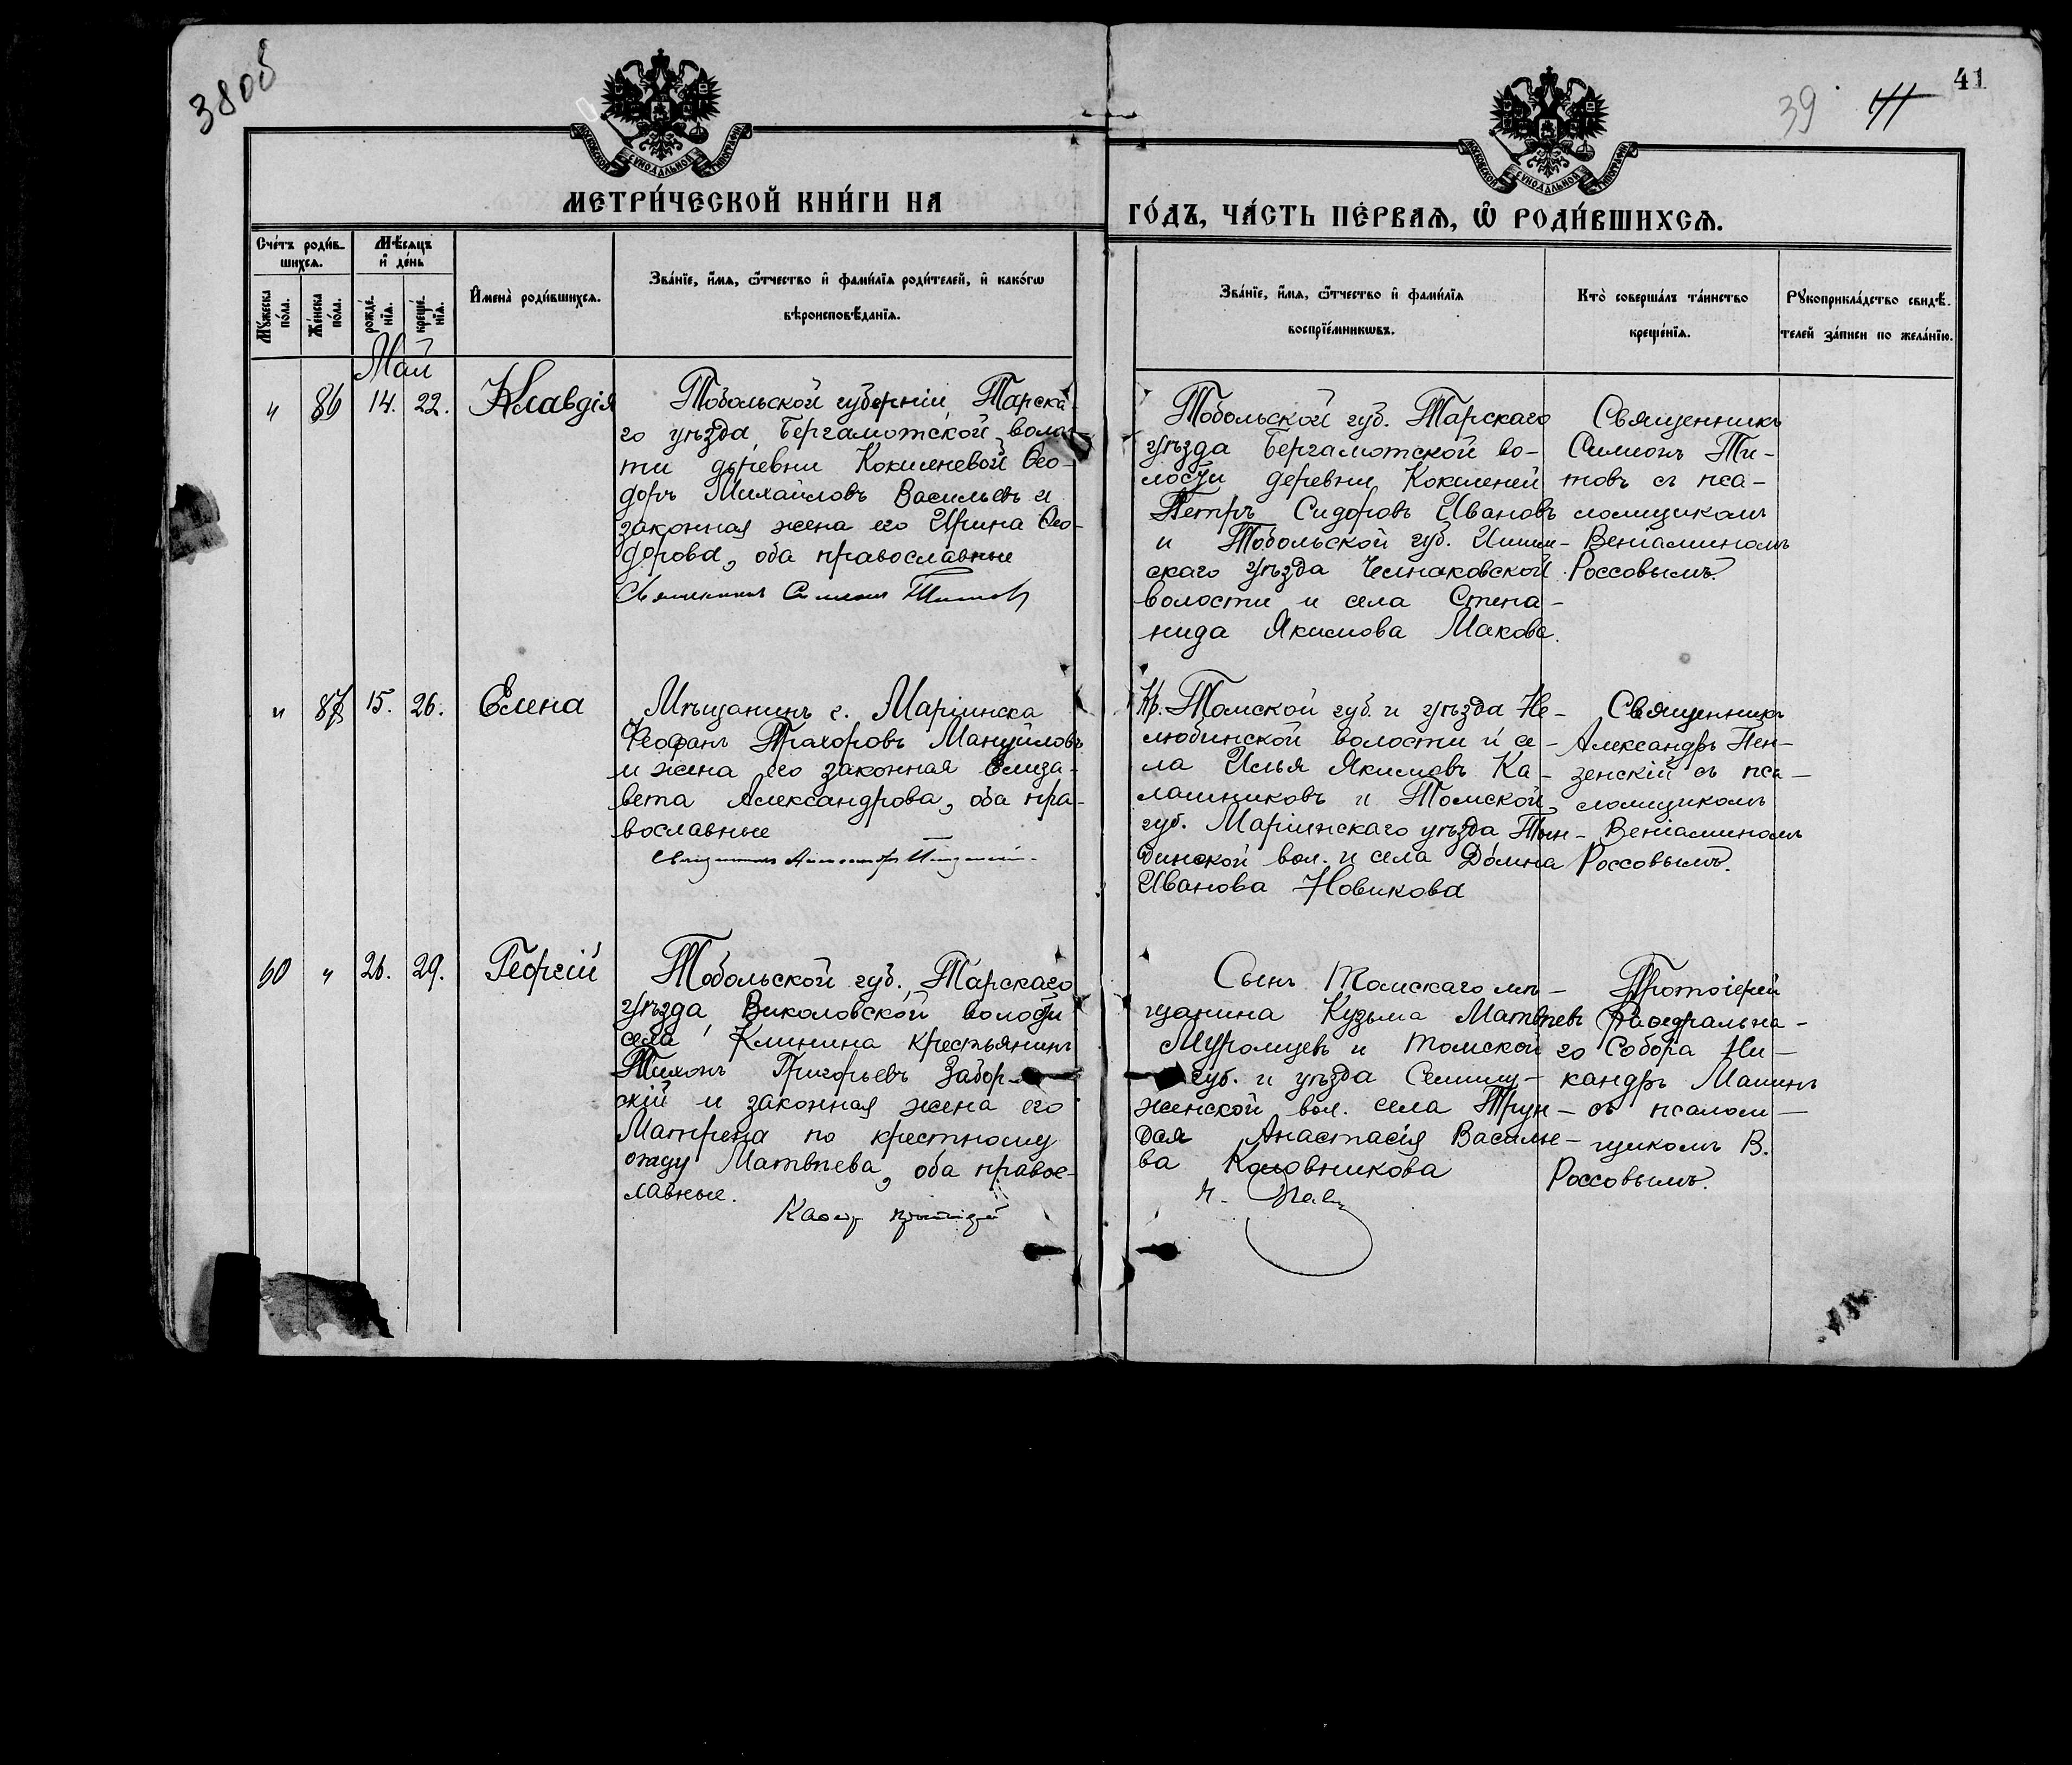 38об
41
39
41
МОСКОВСКОЙ СѴНОДАЛЬНОЙ ТИПОГРАФІИ
МОСКОВСКОЙ СѴНОДАЛЬНОЙ ТИПОГРАФІИ
МЕТРИ́ЧЕСКОЙ КНИ́ГИ НА
ГО́ДЪ, ЧА́СТЬ ПЕ́РВАѦ, Ѡ҆ РОДИ́ВШИХСѦ.
Сче́тъ роди́в-
шихсѧ.
Мѣ́сѧцъ
и҆ де́нь
Мꙋ́жеска
по́ла.
Же́нска
по́ла.
рожде́-
нїѧ.
креще́-
нїѧ.
И҆мена̀ роди́вшихсѧ.
Зва́нїе, и҆́мѧ, ѻ҆́тчество и҆ фами́лїѧ роди́телей, и҆ како́гѡ
вѣроисповѣ́данїѧ.
Зва́нїе, и҆́мѧ, ѻ҆́тчество и҆ фами́лїѧ
воспрїе́мникѡвъ.
Кто̀ соверша́лъ та́инство
креще́нїѧ.
Рꙋкоприкла́дство свидѣ́-
телей за́писи по жела́нїю.
Май
" 86 14. 22. Клавдія
Тобольской губерніи Тарска-
го уѣзда, Бергамотской волос-
ти деревни Кокшеневой Ѳео-
доръ Михайловъ Васильевъ и
законная жена его Ирина Ѳео-
дорова, оба православные
Священникъ Симеонъ Титовъ
Тобольской губ. Тарскаго
уѣзда Бергамотской во-
лости деревни Кокшеней
Петръ Сидоровъ Ивановъ
и Тобольской губ. Ишим-
скаго уѣзда Челнаковской
волости и села Степа-
нида Якимова Макова.
Священникъ
Симеонъ Ти-
товъ съ пса-
ломщикомъ
Веніаминомъ
Россовымъ.
" 87 15. 26. Елена
Мѣщанинъ г. Маріинска
Ѳеофанъ Прахоровъ Мануйловъ
и жена его законная Елиза-
вета Александрова, оба пра-
вославные
Священникъ Александръ Пензенскій
Кр. Томской губ. и уѣзда Не-
любинской волости и се-
ла Илья Якимовъ Ка-
лашниковъ и Томской
губ. Маріинскаго уѣзда Тын-
динской вол. и села Домна
Иванова Новикова
Священникъ
Александръ Пен-
зенскій съ пса-
ломщикомъ
Веніаминомъ
Россовымъ.
60 " 26. 29. Георгій
Тобольской губ., Тарскаго
уѣзда, Виколовской волости
села Клинина крестьянинъ
Тихонъ Григорьевъ Забор-
скій и законная жена его
Матрена по крестному
отцу Матвѣева, оба правос-
лавные.
Каѳедр. протоіерей
Сынъ Томскаго мѣ-
щанина Кузьма Матвѣевъ
Муромцевъ и Томской
губ. и уѣзда Семилу-
женской вол. села Трун-
дая Анастасія Василье-
ва Коновникова
Н. Малинъ
Протоіерей
Каѳедральна-
го Собора Ни-
кандръ Малинъ
съ псалом-
щикомъ В.
Россовымъ.